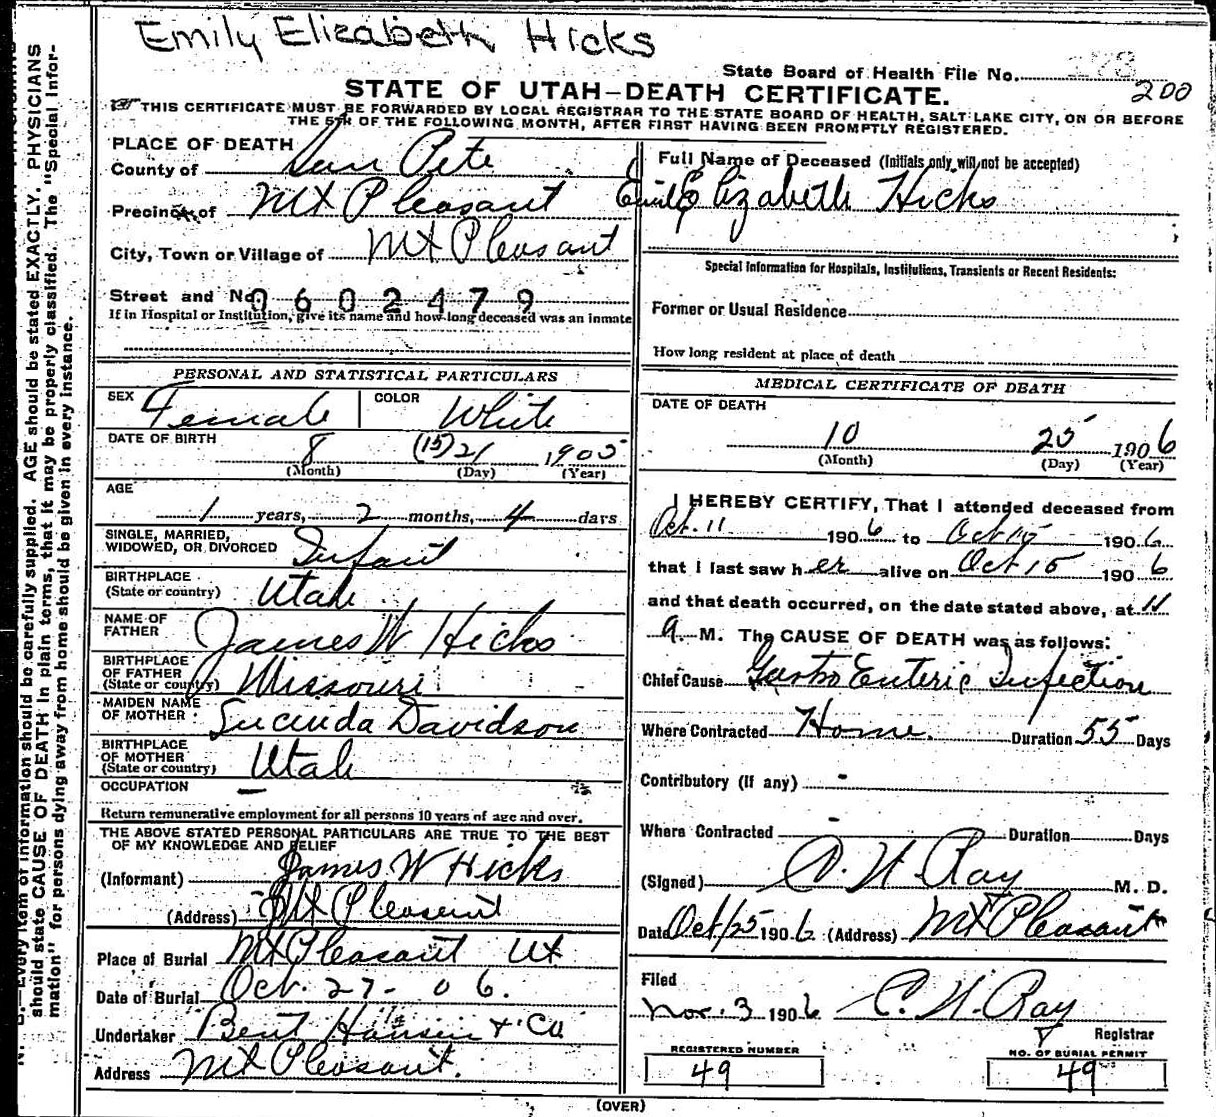 Emily Elizabeth Hicks
State Board of Health File No. 273
200
STATE OF UTAH—DEATH CERTIFICATE.
THIS CERTIFICATE MUST BE FORWARDED BY LOCAL REGISTRAR TO THE STATE BOARD OF HEALTH, SALT LAKE CITY, ON OR BEFORE
THE 5TH OF THE FOLLOWING MONTH, AFTER FIRST HAVING BEEN PROMPTLY REGISTERED.
PLACE OF DEATH
County of San Pete
Precinct of Mt Pleasant
City, Town or Village of Mt Pleasant
Street and No. 0602479
If in Hospital or Institution, give its name and how long deceased was an inmate
PERSONAL AND STATISTICAL PARTICULARS
SEX Female COLOR White
DATE OF BIRTH 8 (15) 21 1905
(Month) (Day) (Year)
AGE
1 years, 2 months, 4 days
SINGLE, MARRIED,
WIDOWED, OR DIVORCED Infant
BIRTHPLACE
(State or country) Utah
NAME OF
FATHER James W Hicks
BIRTHPLACE
OF FATHER
(State or country) Missouri
MAIDEN NAME
OF MOTHER Lucinda Davidson
BIRTHPLACE
OF MOTHER
(State or country) Utah
OCCUPATION —
Return remunerative employment for all persons 10 years of age and over.
THE ABOVE STATED PERSONAL PARTICULARS ARE TRUE TO THE BEST
OF MY KNOWLEDGE AND BELIEF
(Informant) James W Hicks
(Address) Mt Pleasant
Place of Burial Mt Pleasant Ut
Date of Burial Oct. 27- 06.
Undertaker Bent Hansen & Co
Address Mt Pleasant.
Full Name of Deceased (Initials only will not be accepted)
Emily Elizabeth Hicks
Special Information for Hospitals, Institutions, Transients or Recent Residents:
Former or Usual Residence
How long resident at place of death
MEDICAL CERTIFICATE OF DEATH
DATE OF DEATH
10 25 1906
(Month) (Day) (Year)
I HEREBY CERTIFY, That I attended deceased from
Oct. 11 1906 to Oct 15 1906
that I last saw her alive on Oct 15 1906
and that death occurred, on the date stated above, at 11
a. M. The CAUSE OF DEATH was as follows:
Chief Cause Gastro Enteric Infection
Where Contracted Home. Duration 55 Days
Contributory (If any) -
Where Contracted - Duration Days
(Signed) O. W. Ray M. D.
Date Oct 25 1906 (Address) Mt Pleasant
Filed
Nov. 3 1906 C. W. Ray
Registrar
REGISTERED NUMBER
49
NO. OF BURIAL PERMIT
49
(OVER)
N. B.—Every item of information should be carefully supplied. AGE should be stated EXACTLY. PHYSICIANS
should state CAUSE OF DEATH in plain terms, that it may be properly classified. The "Special Infor-
mation" for persons dying away from home should be given in every instance.